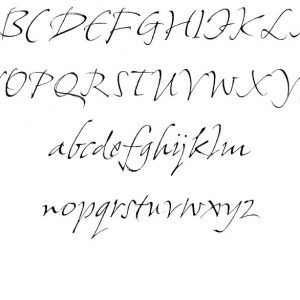 BCDEFGHIJKL
OPQRSTUVWXY
abcdefghijklm
nopqrstuvwxyz